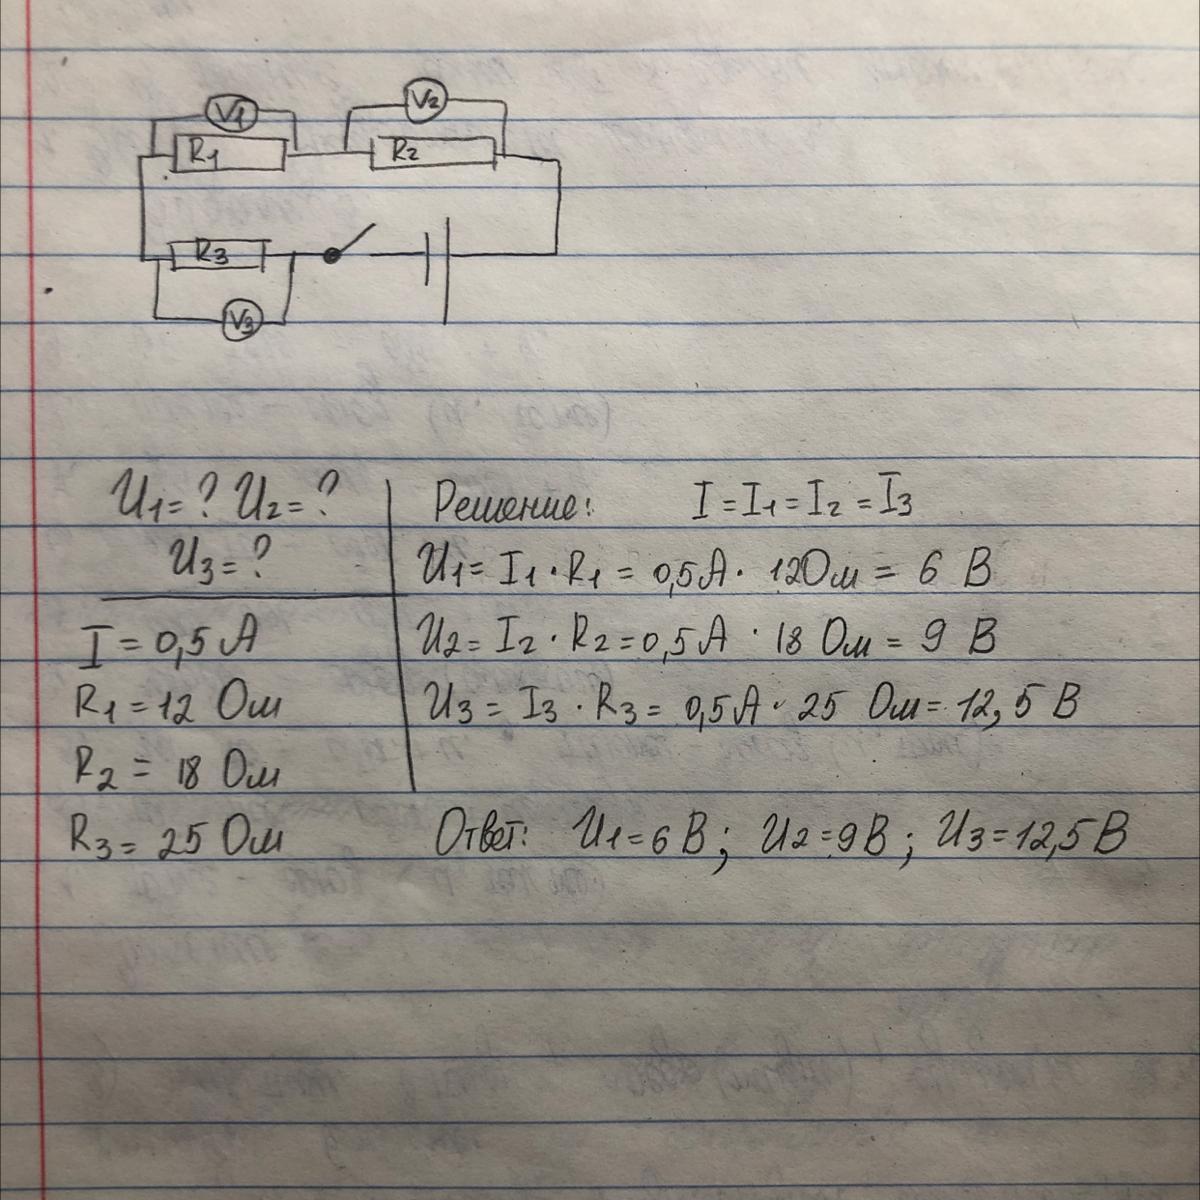 V1
V2
R1
R2
R3
V3
U1=? U2=?
U3=?
I=0,5 A
R1=12 Ом
R2=18 Ом
R3=25 Ом
Решение: I=I1=I2=I3
U1=I1·R1=0,5А·12Ом=6 В
U2=I2·R2=0,5А·18 Ом=9 В
U3=I3·R3=0,5А·25 Ом=12,5 В
Ответ: U1=6 В; U2=9В; U3=12,5 В